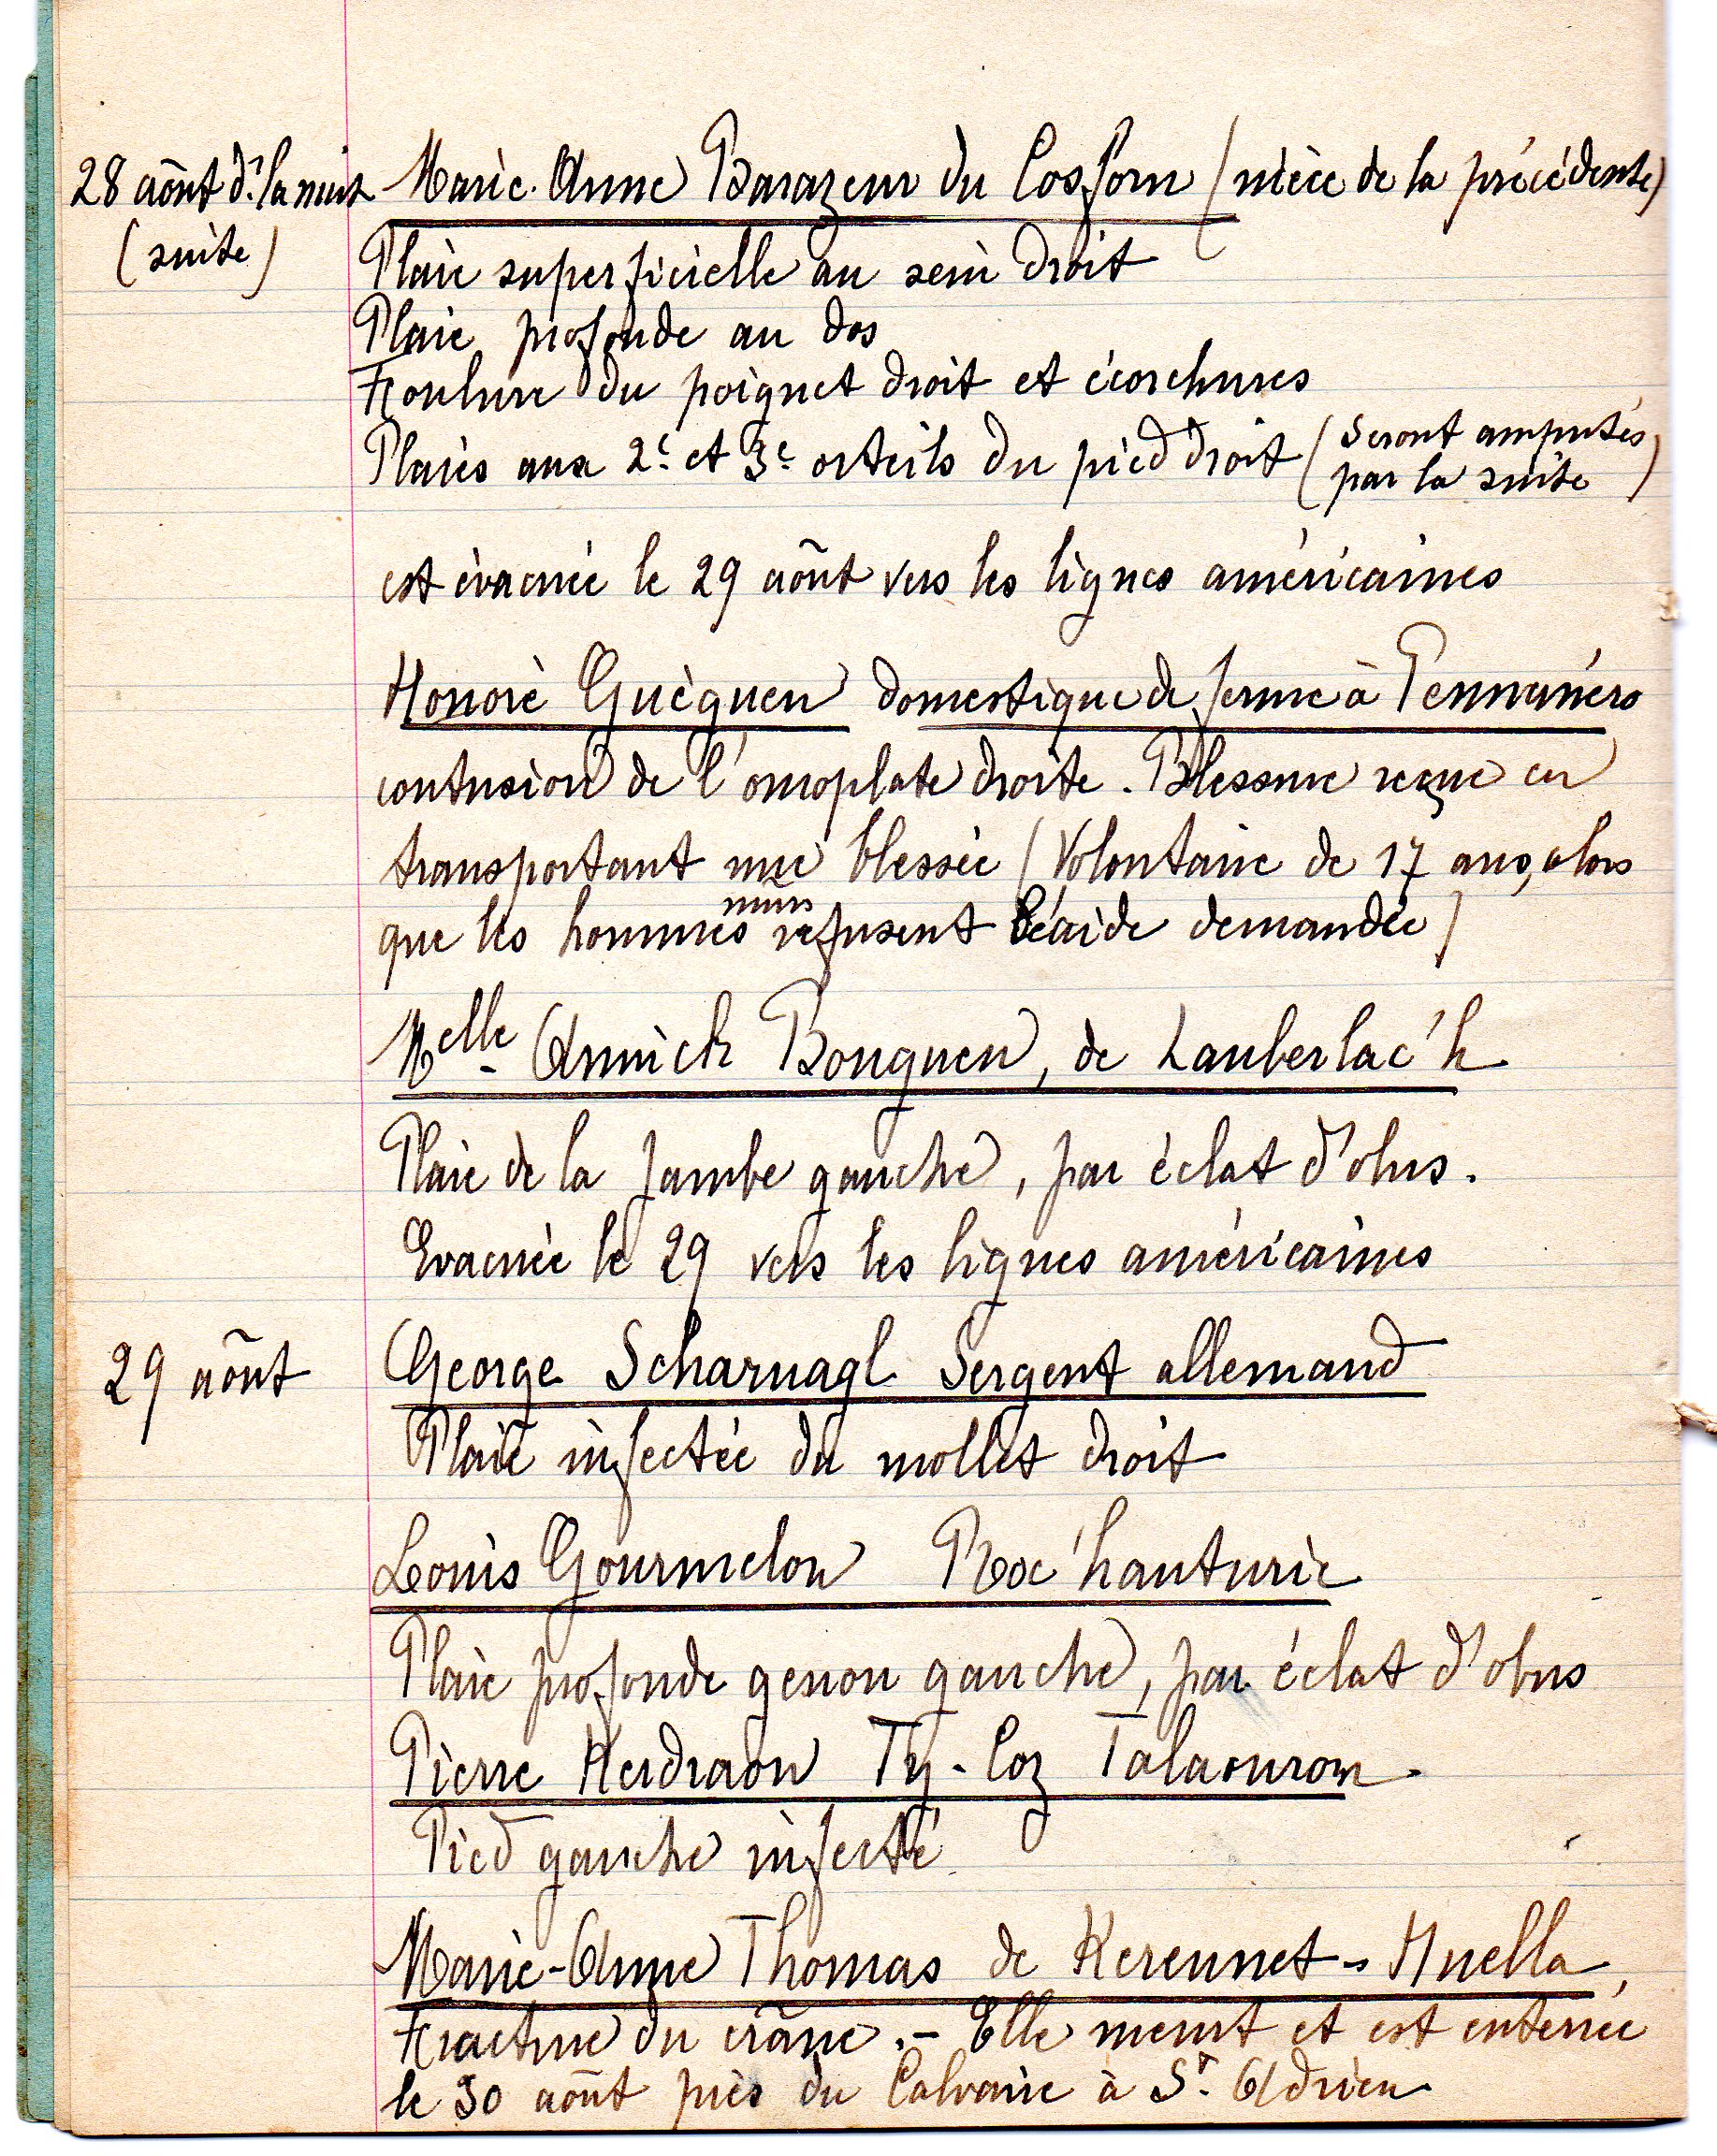 28 août ds la nuit
(suite)
Marie-Anne Barazeur du Cosforn (nièce de la précédente)
Plaie superficielle au sein droit
Plaie profonde au dos
Foulure du poignet droit et écorchures
Plaies aux 2e et 3e orteils du pied droit (seront amputés
par la suite)
est évacuée le 29 août vers les lignes américaines
Honoré Guéguen domestique de ferme à Pennanéro
contusion de l'omoplate droite. Blessure reçue en
transportant une blessée (Volontaire de 17 ans, alors
que les hommes mûrs refusent l'aide demandée)
Melle Annick Bouguen, de Lauberlac'h
Plaie de la jambe gauche, par éclat d'obus.
Evacuée le 29 vers les lignes américaines
29 août
George Scharnagl Sergent allemand
Plaie infectée du mollet droit
Louis Gourmelon Roc'hanturic
Plaie profonde genou gauche, par éclat d'obus
Pierre Kerdraon Ty-Coz Talaourom.
Pied gauche infecté
Marie-Anne Thomas de Kerennet-Huella,
Fracture du crâne.- Elle meurt et est enterrée
le 30 août près du Calvaire à St. Adrien